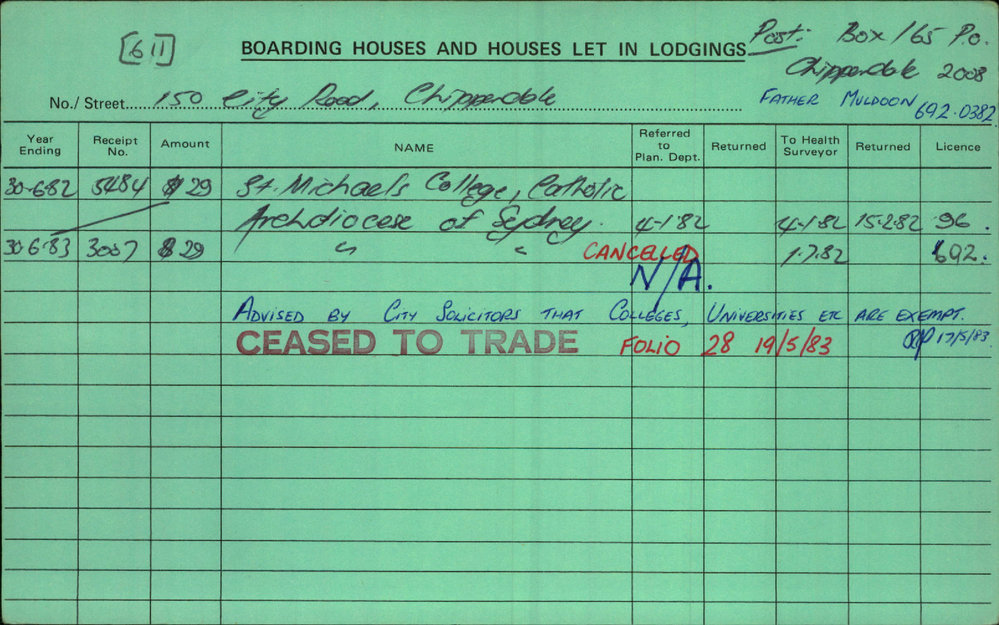 [611]
BOARDING HOUSES AND HOUSES LET IN LODGINGS
Post: Box 165 P.O.
Chippendale 2008
No./ Street 150 City Road, Chippendale
FATHER MULDOON 692.0382
Year Ending Receipt No. Amount NAME Referred to Plan. Dept. Returned To Health Surveyor Returned Licence
30-6-82 5484 $29 St. Michaels College, Catholic
Archdiocese of Sydney. 4-1-82 4-1-82 15-2-82 96.
30-6-83 3087 $29 " " CANCELLED 1.7.82 692.
N/A.
ADVISED BY CITY SOLICITORS THAT COLLEGES, UNIVERSITIES ETC ARE EXEMPT.
CEASED TO TRADE FOLIO 28 19/5/83 17/5/83